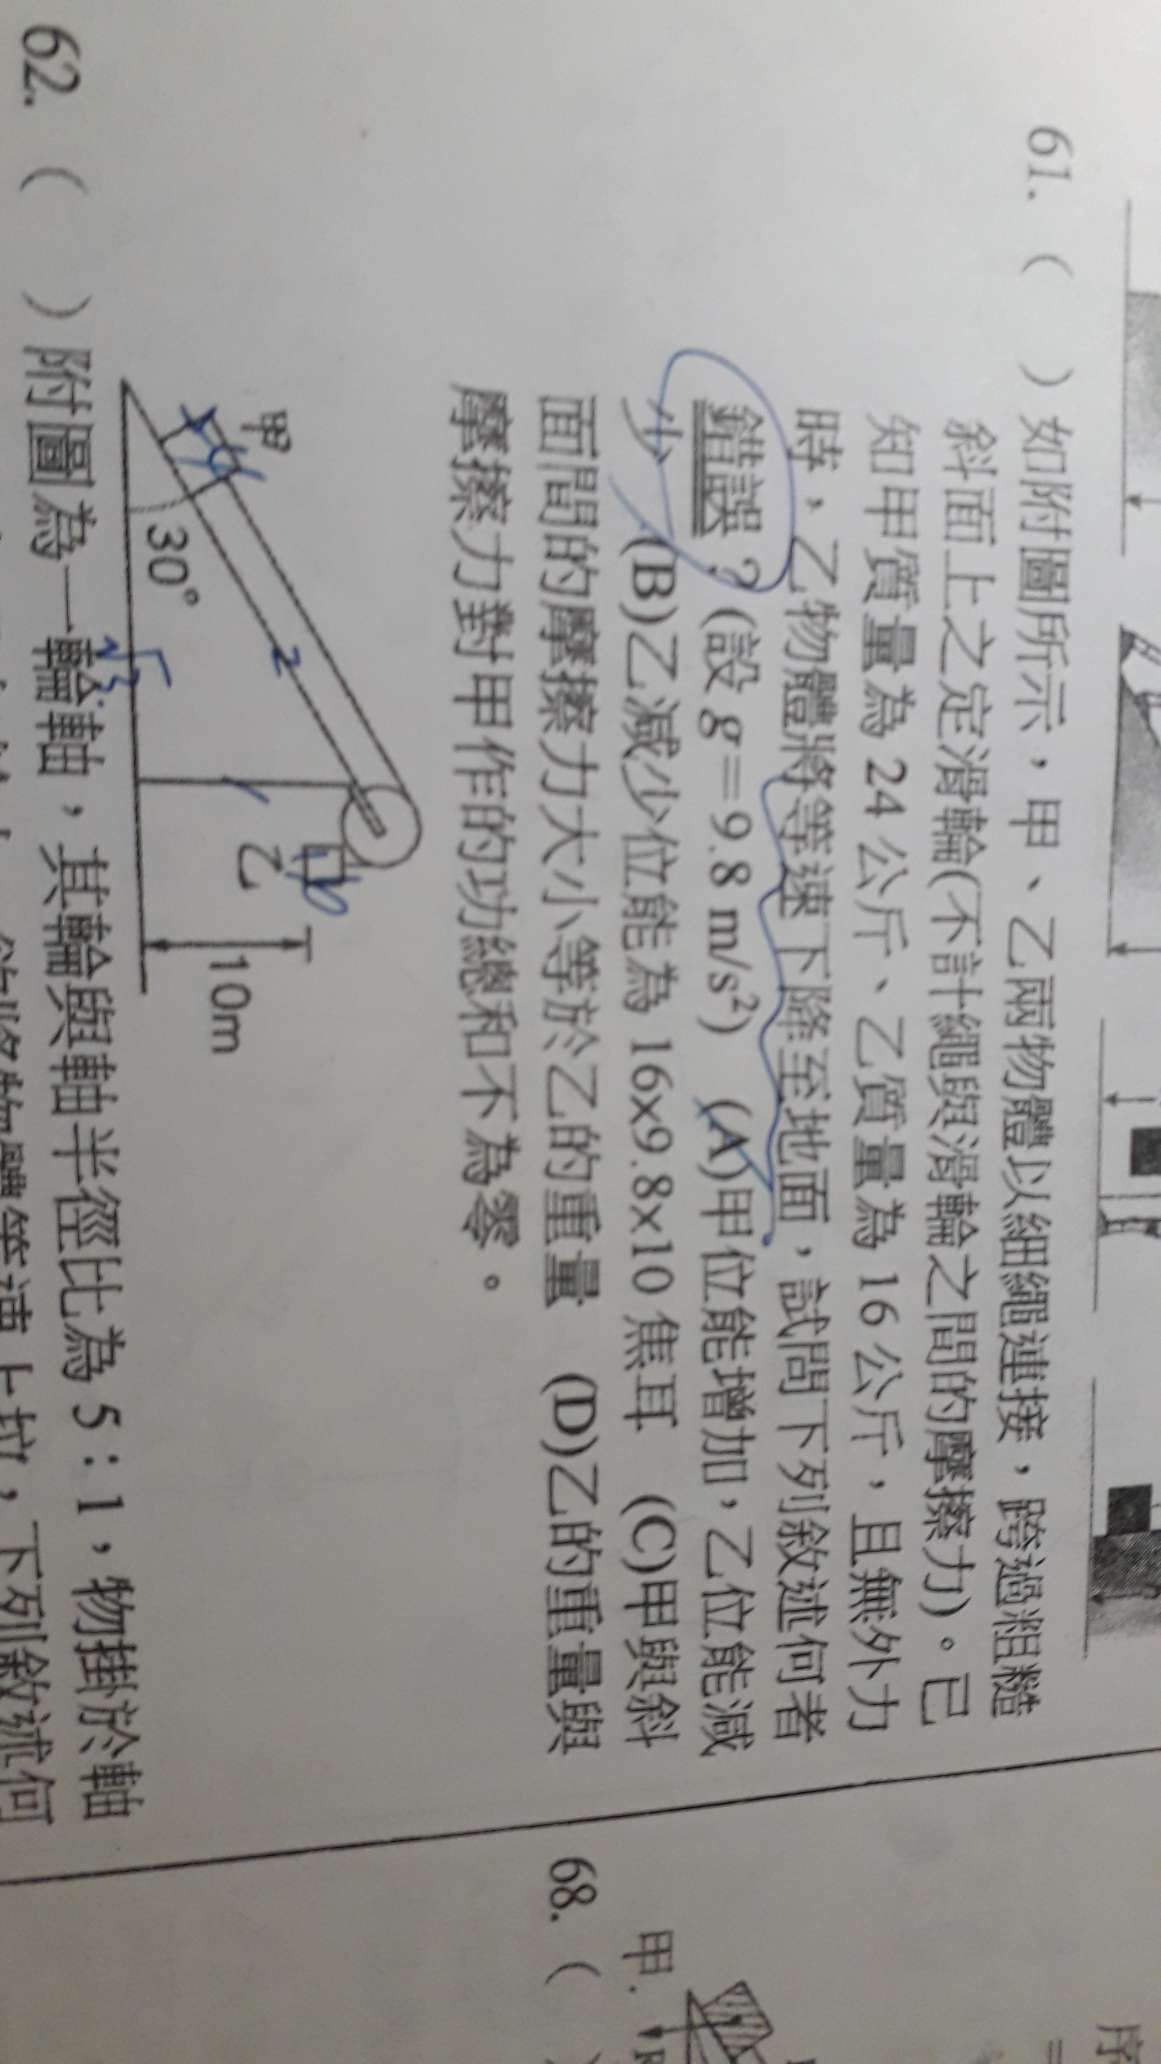 61. （　）如附圖所示，甲、乙兩物體以細繩連接，跨過粗糙
斜面上之定滑輪(不計繩與滑輪之間的摩擦力)。已
知甲質量為 24 公斤、乙質量為 16 公斤，且無外力
時，乙物體將等速下降至地面，試問下列敘述何者
錯誤？(設 g＝9.8 m/s²) (A)甲位能增加，乙位能減
少 (B)乙減少位能為 16×9.8×10 焦耳 (C)甲與斜
面間的摩擦力大小等於乙的重量 (D)乙的重量與
摩擦力對甲作的功總和不為零。
甲
2
30°
√3
乙
10m
62. （　）附圖為一輪軸，其輪與軸半徑比為 5：1，物掛於軸
下列敘述何
68. （
甲.
序